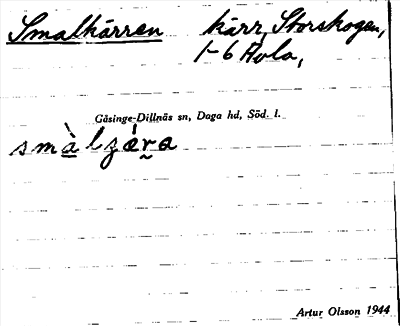 Smalkärren kärr, Storskogen,
1-6 Hola,
Gåsinge-Dillnäs sn, Daga hd, Söd. l.
smàlzæ̀ra
Artur Olsson 1944